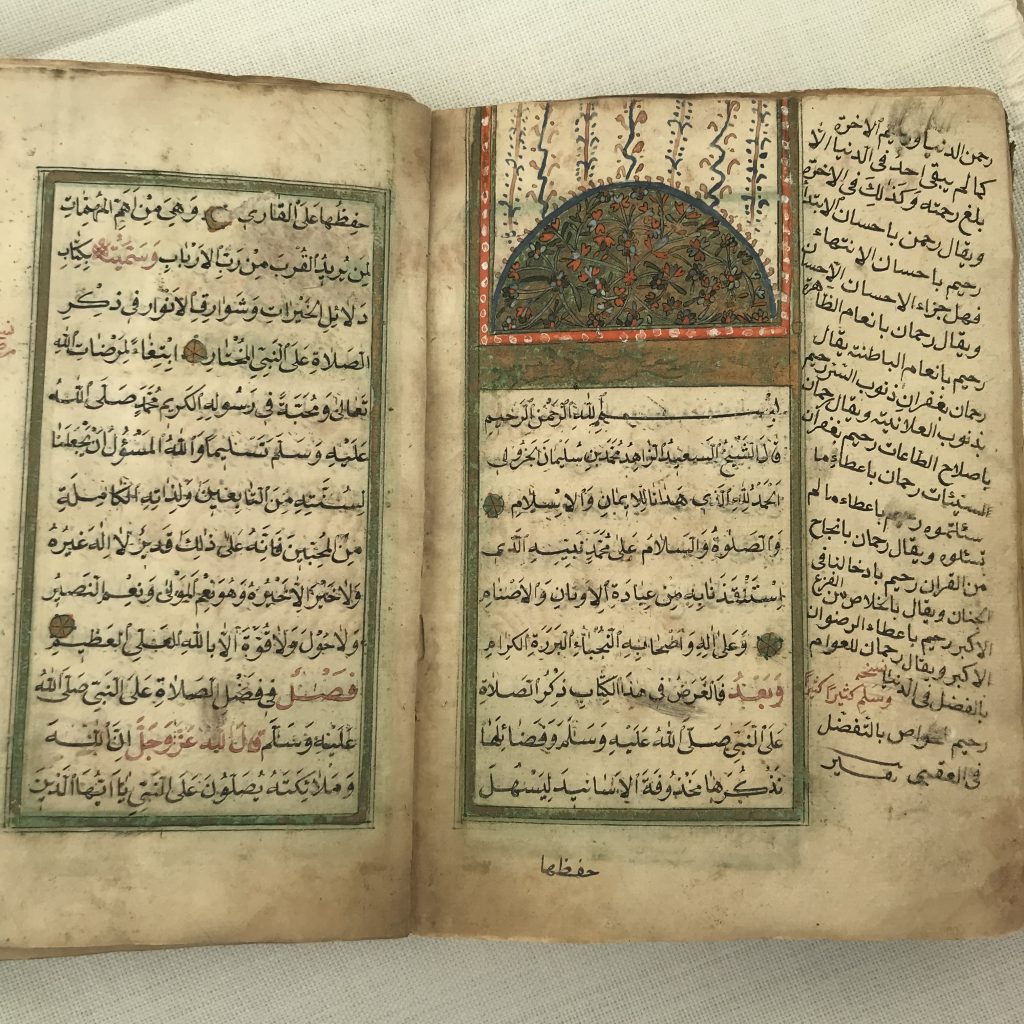 بسم الله الرحمن الرحيم
قال الشيخ السعيد الزاهد محمد بن سليمان الجزولي
الحمد لله الذي هدانا للايمان والاسلام
والصلوة والسلام على محمد نبيه الذي
استنقذنا به من عبادة الاوثان والاصنام
وعلى اله واصحابه النجباء البررة الكرام
وبعد فالغرض في هذا الكتاب ذكر الصلاة
على النبي صلى الله عليه وسلم وفضائلها
نذكرها محذوفة الاسانيد ليسهل
حفظها
رحمن الدنيا ورحيم الاخرة
كما لم يبقى احد في الدنيا الا
بلغ رحمته وكذلك في الاخرة
ويقال رحمن باحسان الابتداء
رحيم باحسان الانتهاء
فهل جزاء الاحسان الاحسان
ويقال رحمان بانعام الظاهرة
رحيم بانعام الباطنة يقال
رحمان بغفران ذنوب السر رحيم
بذنوب العلانية ويقال رحمان
باصلاح الطاعات رحيم بغفران
السيئات رحمان باعطاء ما
سئلتموه رحيم باعطاء ما لم
تسئلوه ويقال رحمان بانجاح
من القران رحيم بادخالنا في
الجنان ويقال بالخلاص من الفزع
الاكبر رحيم باعطاء الرضوان
الاكبر ويقال رحمان للعوام
بالفضل في الدنيا
نسخه
وسلم كثيرا كثيرا
رحيم الخواص بالتفضل
في العقبى تفسير
حفظها على القاري وهي من اهم المهمات
لمن يريد القرب من رب الارباب وسميته بكتاب
دلائل الخيرات وشوارق الانوار في ذكر
الصلاة على النبي المختار ابتغاء لمرضات الله
تعالى ومحبة في رسوله الكريم محمد صلى الله
عليه وسلم تسليما والله المسؤل ان يجعلنا
لسنته من التابعين ولذاته الكاملة
من المحبين فانه على ذلك قدير لا اله غيره
ولا خير الا خيره وهو نعم المولى ونعم النصير
ولا حول ولا قوة الا بالله العلي العظيم
فصل في فضل الصلاة على النبي صلى الله
عليه وسلم قال الله عز وجل ان الله
وملائكته يصلون على النبي يا ايها الذين